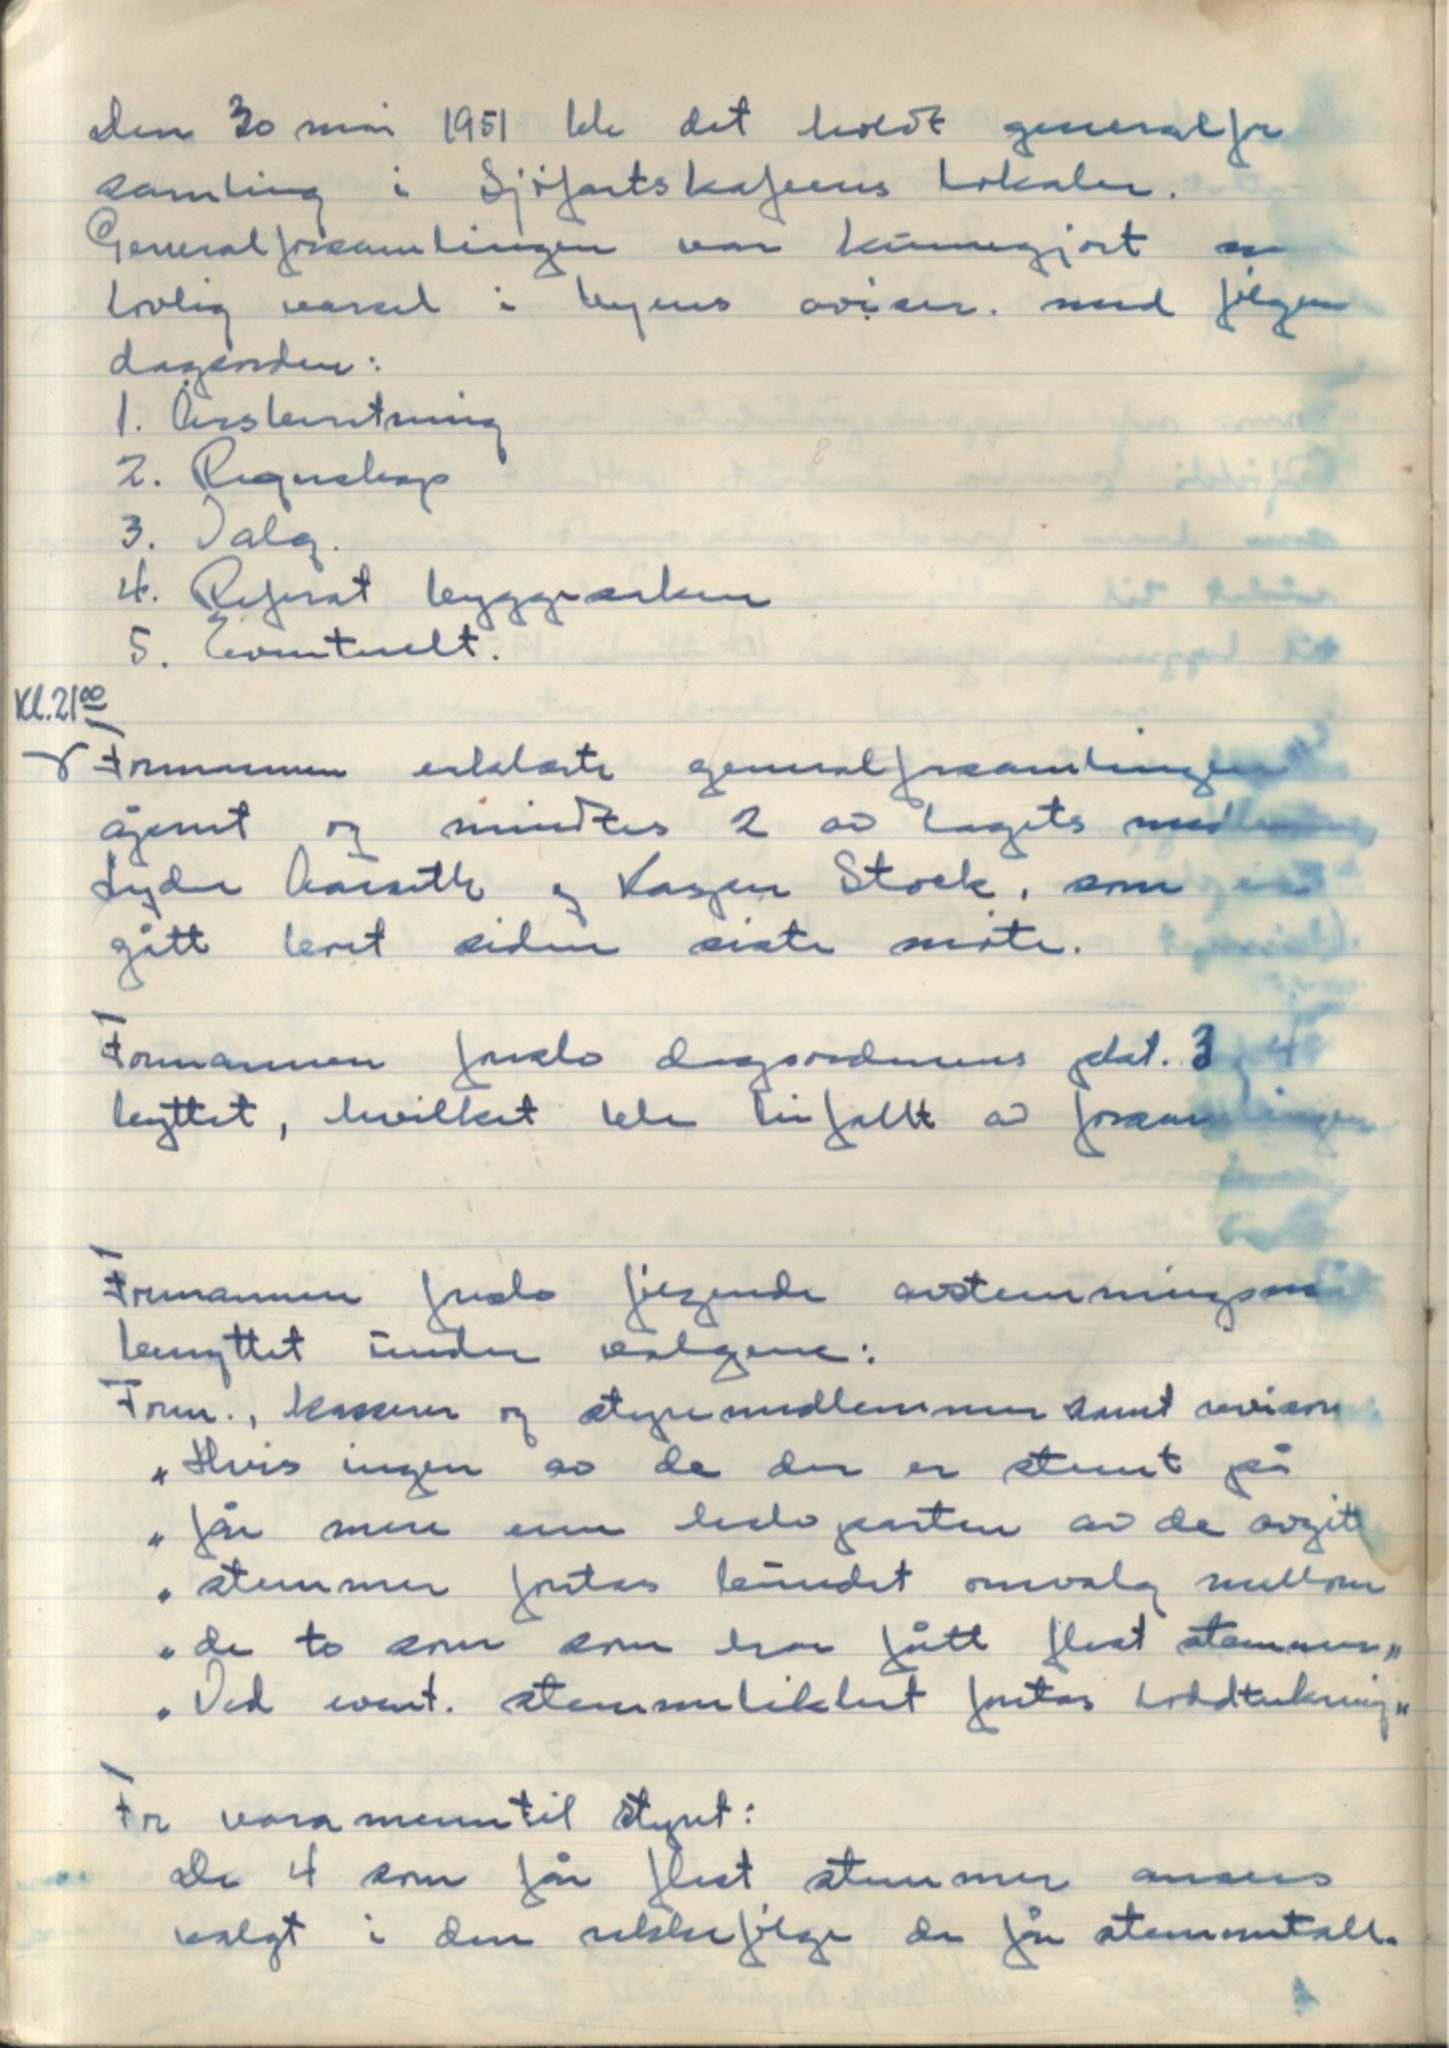 Den 30 mai 1951 ble det holdt generalfor
samling i Sjöfartskafeens lokaler.
Generalforsamlingen var kunngjort
lovlig varsel i byens aviser. med fölgen
dagsorden:
1. Årsberetning
2. Regnskap
3. Valg.
4. Referat byggesaken
5. Eventuelt.
Kl. 2100
Formannen erklærte generalforsamlingen
åpnet og mindtes 2 av lagets medlemmer
Lyder og Kasper Stock, som
gått bort siden siste möte.
Formannen foreslo dagsordenens pkt. 3 og 4
byttet, hvilket ble bifallt av forsamlingen
Formannen foreslo fölgende avstemningsmåt
benyttet under valgene:
Form., kasserer og styremedlemmer samt revisor
„Hvis ingen av de der er stemt på
„får mere enn halvparten av de avgitt
„stemmer foretas bundet omvalg mellom
„de to som som har fått flest stemmer„
„Ved event. stemmelikhet foretas loddtrekning„
For varamenn til styret:
De 4 som får flest stemmer ansees
valgt i den rekkefölge de får stemmetall.